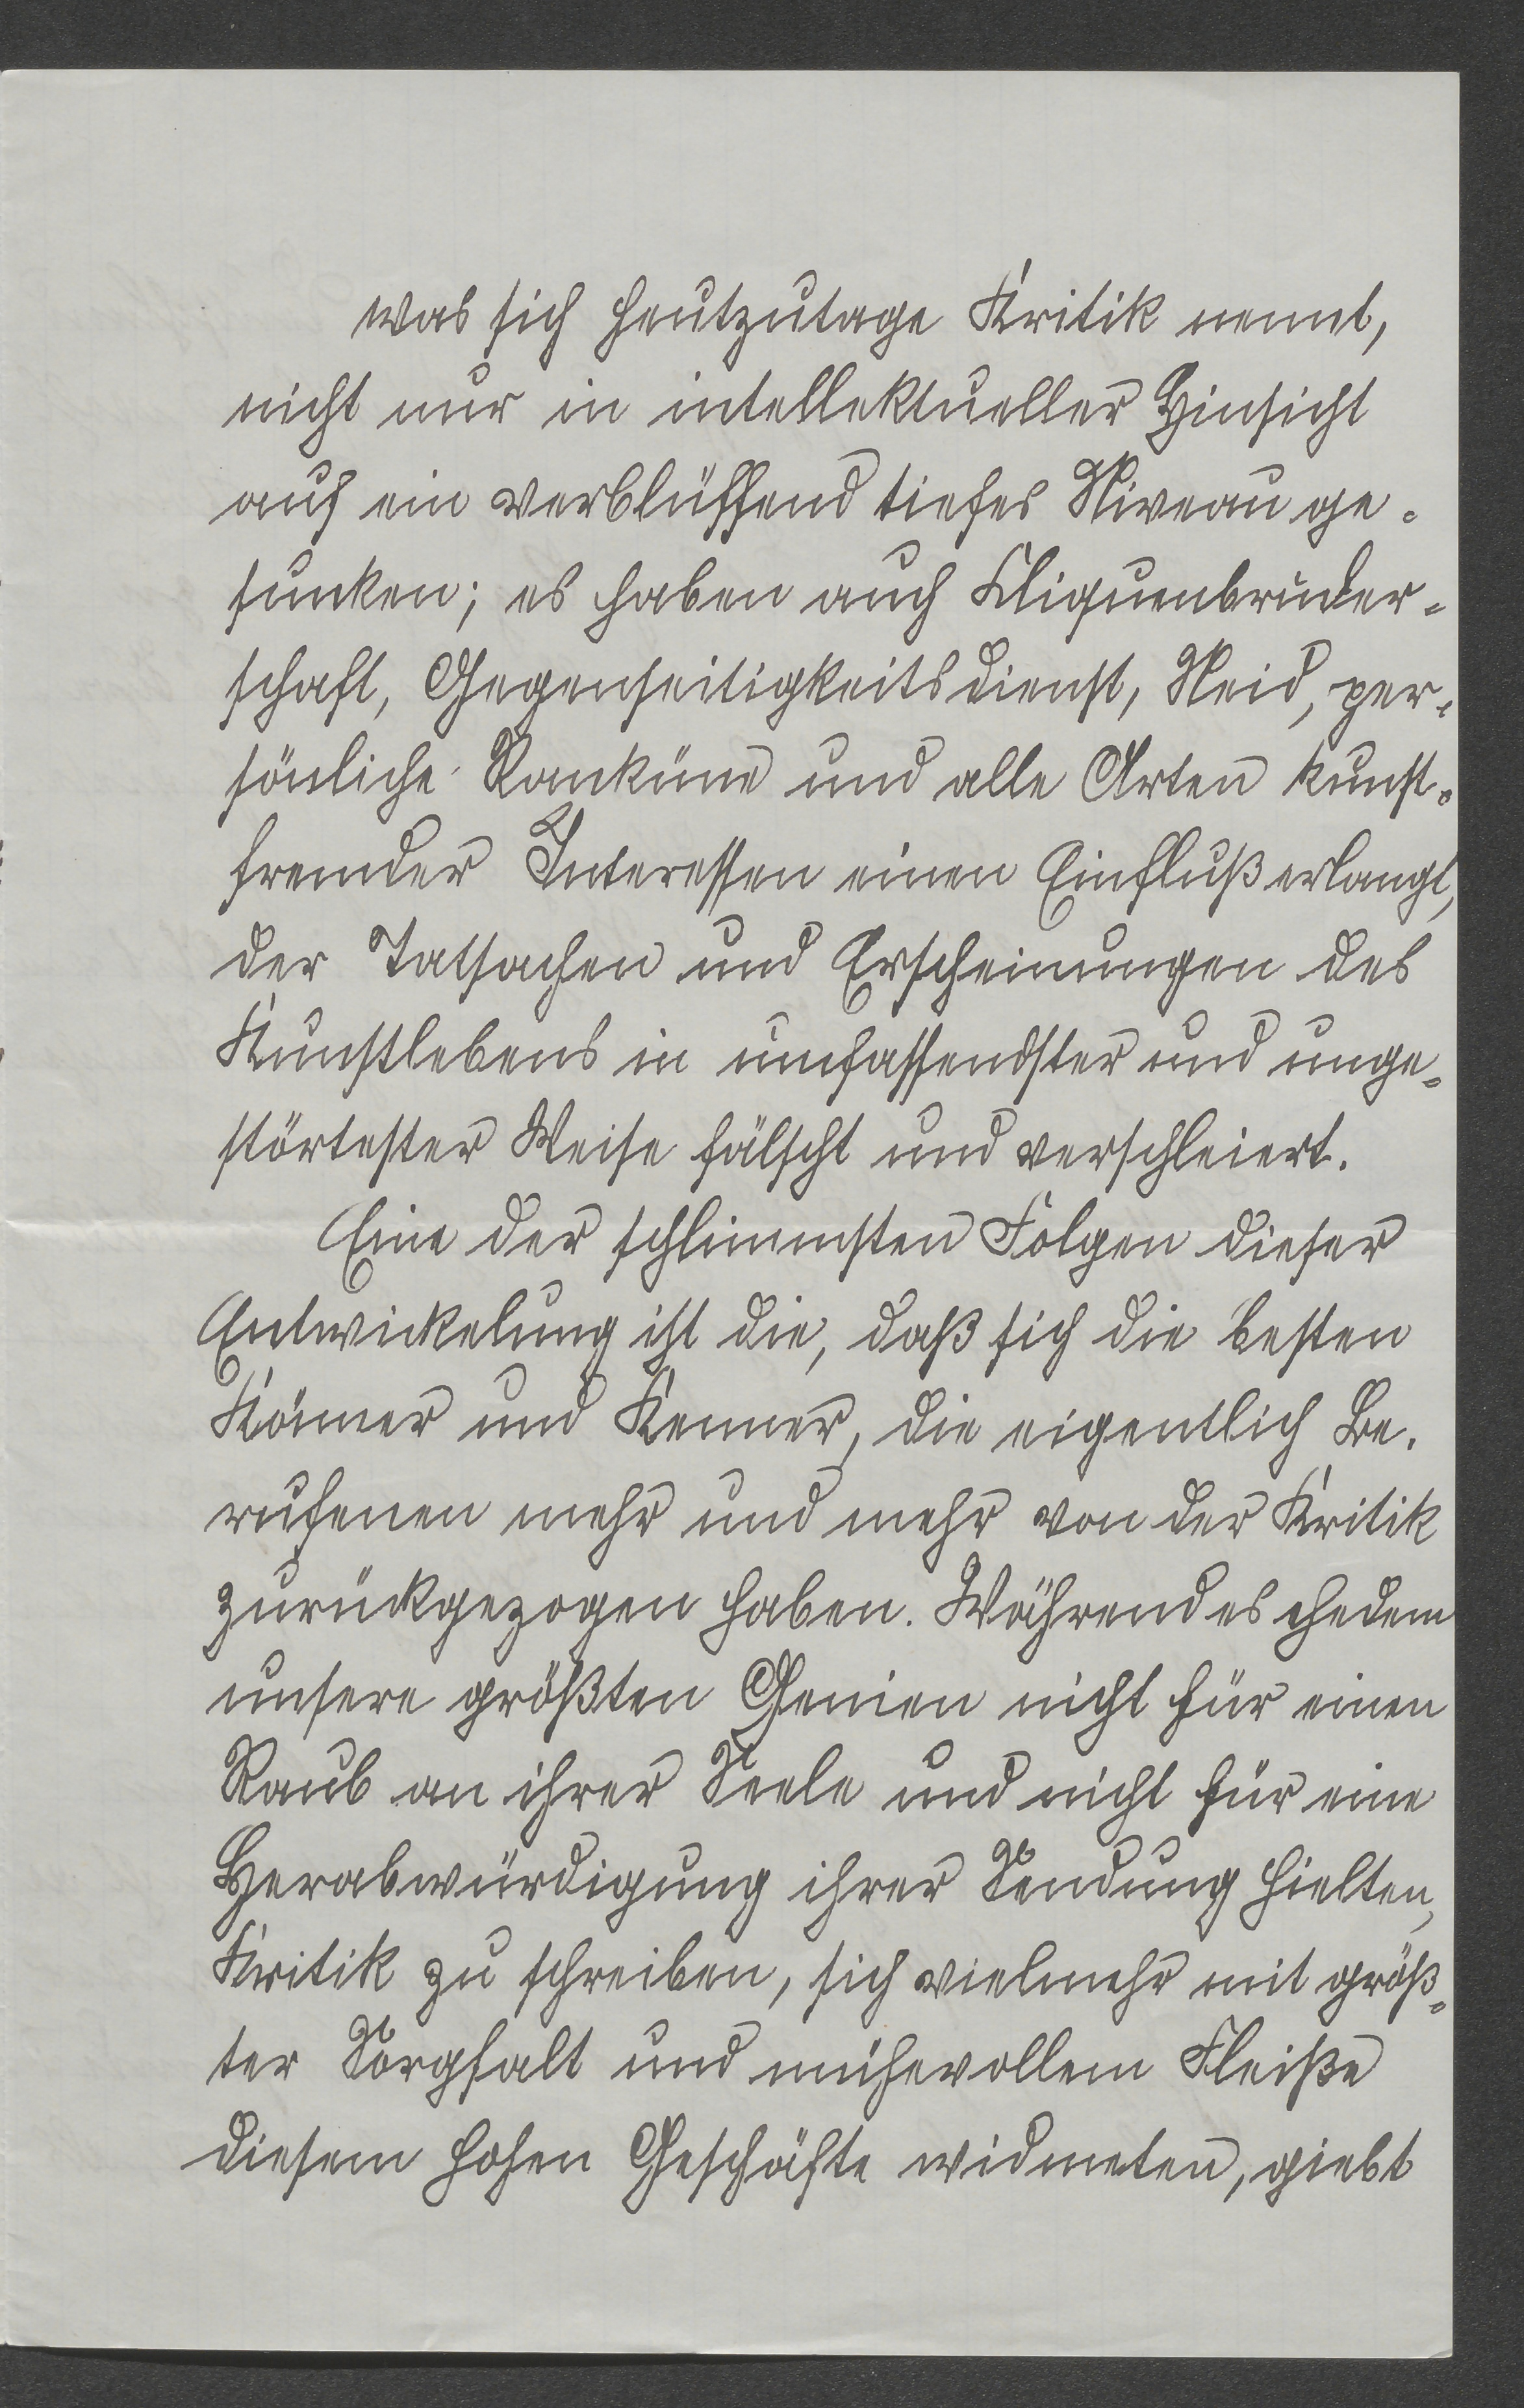 was sich heutzutage Kritik nennt,
nicht nur in intellektueller Hinsicht
auf ein verblüffend tiefes Niveau ge-
sunken; es haben auch Kliquenbrüder-
schaft, Gegenseitigkeitsdienst, Neid, per-
sönliche Ranküne und alle Arten kunst-
fremder Interessen einen Einfluß erlangt,
der Tatsachen und Erscheinungen des
Kunstlebens in umfassendster und unge-
störtester Weise fälscht und verschleiert.
Eine der schlimmsten Folgen dieser
Entwickelung ist die, daß sich die besten
Könner und Kenner, die eigentlich Be-
rufenen mehr und mehr von der Kritik
zurückgezogen haben. Während es ehedem
unsere größten Genien nicht für einen
Raub an ihrer Seele und nicht für eine
Herabwürdigung ihrer Sendung hielten,
Kritik zu schreiben, sich vielmehr mit größ-
ter Sorgfalt und mühevollem Fleiße
diesem hohen Geschäfte widmeten, giebt